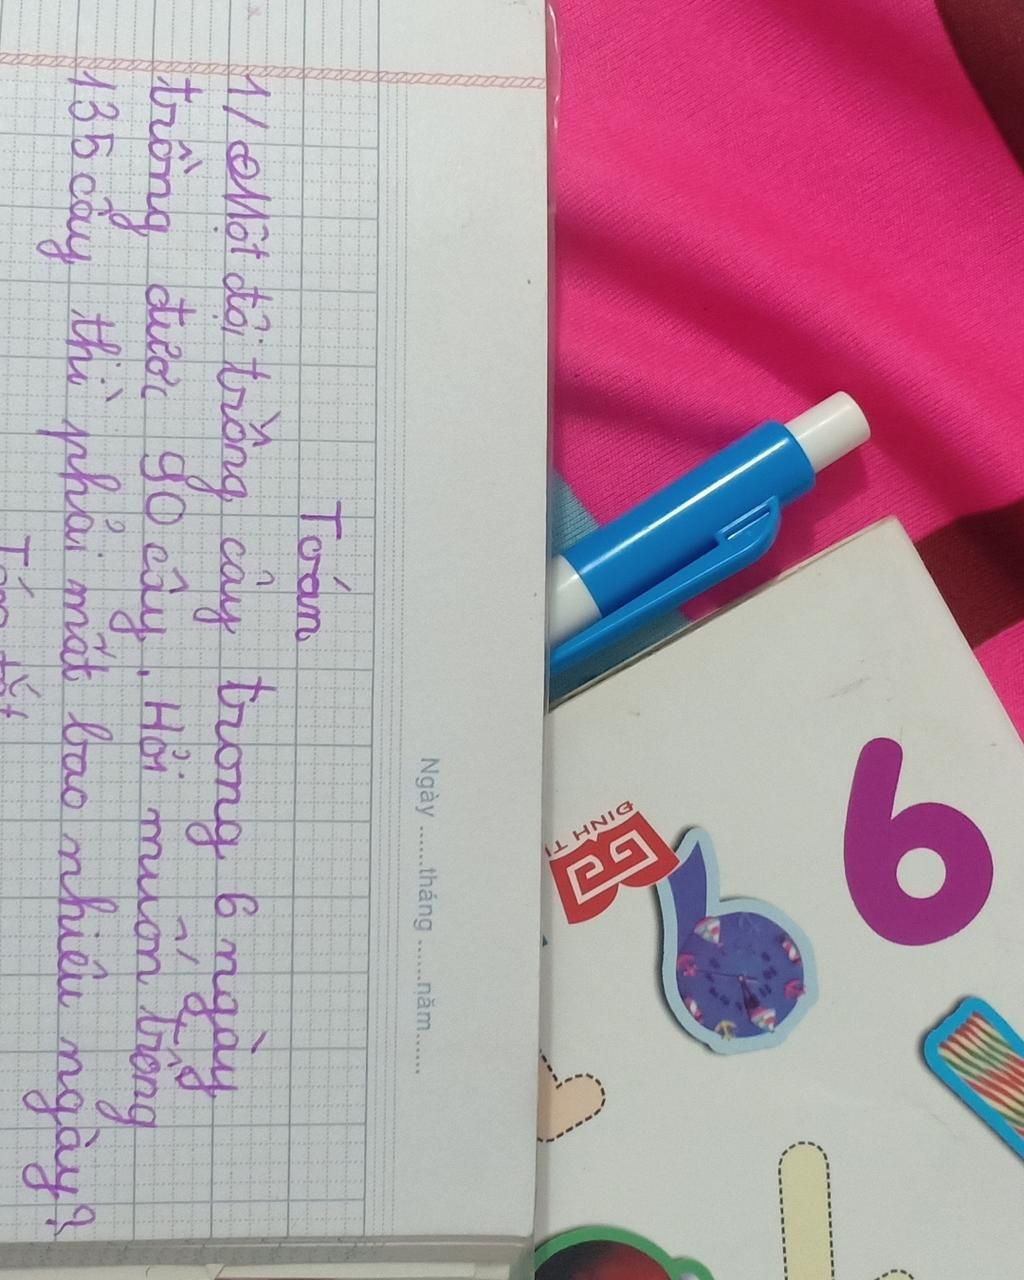 Ngày ......tháng ......năm......
Toán
1/ Một đội trồng cây trong 6 ngày
trồng được 90 cây. Hỏi muốn trồng
135 cây thì phải mất bao nhiêu ngày?
Tóm tắt
ĐINH TỊ
6